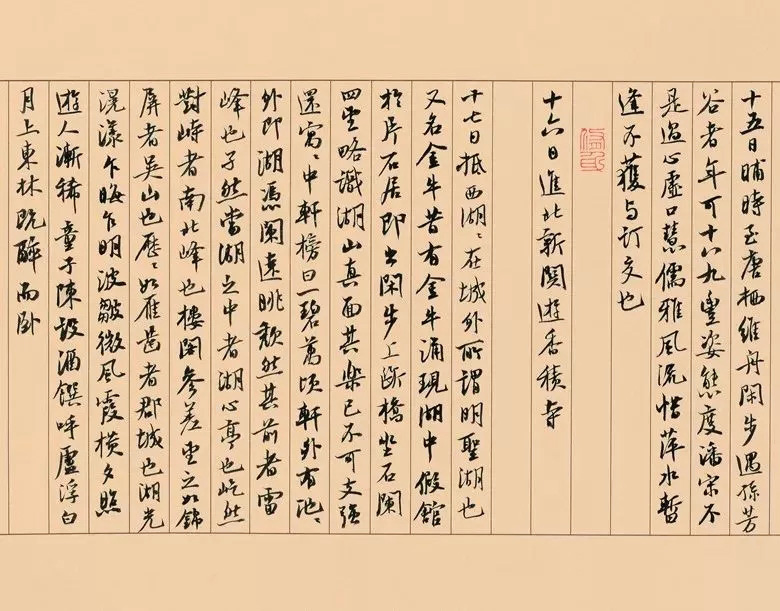 十五日晡時至唐栖維舟閑步遇孫芳
谷者年可十八九豐姿態度潘宋不
是過心虛口慧儒雅風流惜萍水暫
逢不獲与訂交也
十六日進北新關遊香積寺
十七日抵西湖〻在城外所謂明聖湖也
又名金牛昔有金牛涌現湖中假館
於片石居即出閑步上斷橋坐石闌
四望略識湖山真面其樂已不可支強
還寓〻中軒榜曰一碧萬頃軒外有池〻
外即湖憑闌遠眺頹然其前者雷
峰也孑然當湖之中者湖心亭也屹然
對峙者南北峰也樓閣參差望之如錦
屏者吳山也歷〻如雁齒者郡城也湖光
滉漾乍晦乍明波皺微風霞橫夕照
遊人漸稀童子陳設酒饌呼盧浮白
月上東林既醉而卧